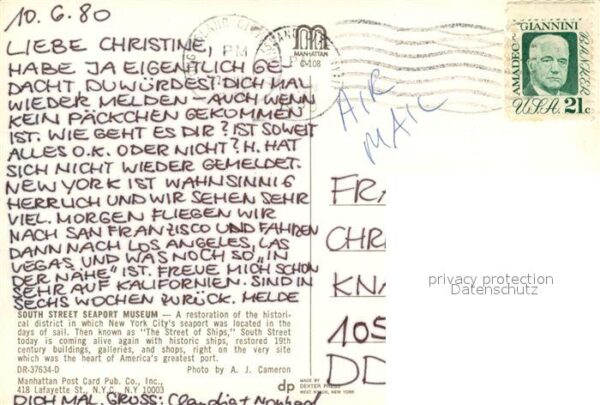 10.6.80
LIEBE CHRISTINE,
HABE JA EIGENTLICH GE-
DACHT DU WÜRDEST DICH MAL
WIEDER MELDEN – AUCH WENN
KEIN PÄCKCHEN GEKOMMEN
IST. WIE GEHT ES DIR? IST SOWEIT
ALLES O.K. ODER NICHT? H. HAT
SICH NICHT WIEDER GEMELDET.
NEW YORK IST WAHNSINNIG
HERRLICH UND WIR SEHEN SEHR
VIEL. MORGEN FLIEGEN WIR
NACH SAN FRANZISCO UND FAHREN
DANN NACH LOS ANGELES, LAS
VEGAS UND WAS NOCH SO „IN
DER NÄHE" IST. FREUE MICH SCHON
SEHR AUF KALIFORNIEN. SIND IN
SECHS WOCHEN ZURÜCK. MELDE
SOUTH STREET SEAPORT MUSEUM — A restoration of the histori-
cal district in which New York City's seaport was located in the
days of sail. Then known as "The Street of Ships," South Street
today is coming alive again with historic ships, restored 19th
century buildings, galleries, and shops, right on the very site
which was the heart of America's greatest port.
DR-37634-D Photo by A. J. Cameron
Manhattan Post Card Pub. Co., Inc.,
418 Lafayette St., N.Y.C., N.Y. 10003
DICH MAL. GRUSS: Claudia +
PM
MANHATTAN
C-108
AIR
MAIL
AMADEO P. GIANNINI
BANKER
U.S.A. 21c
FRA
CHR
KNA
105
DD
privacy protection
Datenschutz
dp MADE BY
DEXTER PRESS
WEST NYACK, NEW YORK